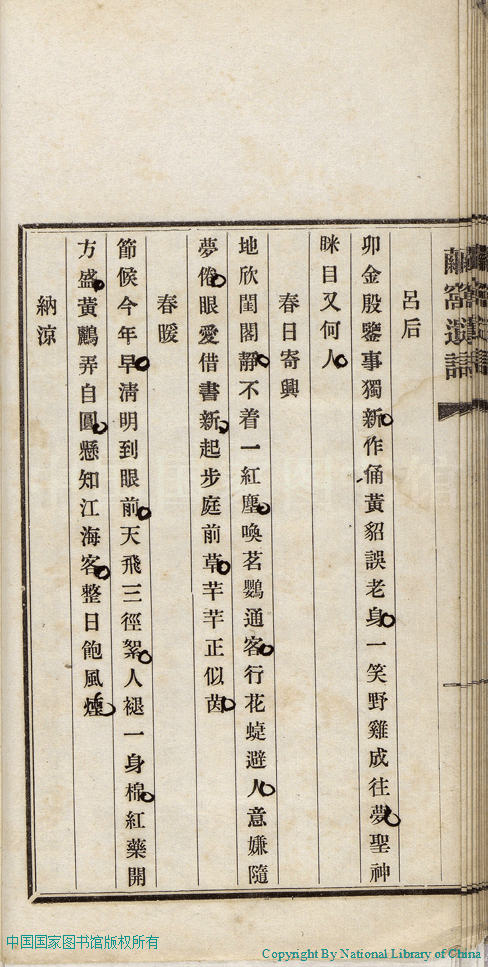 呂后
卯金殷鑒事獨新作俑黃貂誤老身一笑野雞成往夢聖神
眯目又何人
春日寄興
地欣閨閣靜不着一紅塵喚茗鸚通客行花蜨避人意嫌隨
夢倦眼愛借書新起步庭前草芊芊正似茵
春暖
節候今年早淸明到眼前天飛三徑絮人褪一身棉紅藥開
方盛黃鸝弄自圓懸知江海客整日飽風煙
納涼
中国国家图书馆版权所有
Copyright By National Library of China